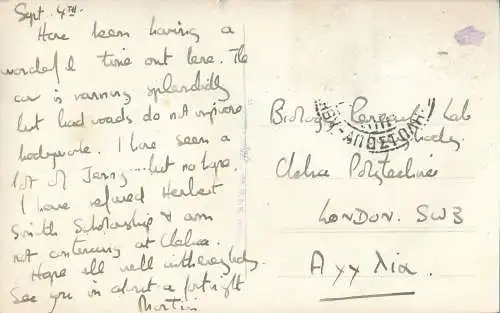 Sept. 4TH.
Have been having a
wonderful time out here. The
car is running splendidly
but bad roads do not improve
bodywork. I have seen a
lot of Jenny.... but no hope.
I have refused Herbert
Smith Scholarship & am
not continuing at Chelsea.
Hope all well with everybody
See you in about a fortnight
Martin
Biology Research Lab
Chelsea Polytechnic
LONDON. SW3
Αγγλία.